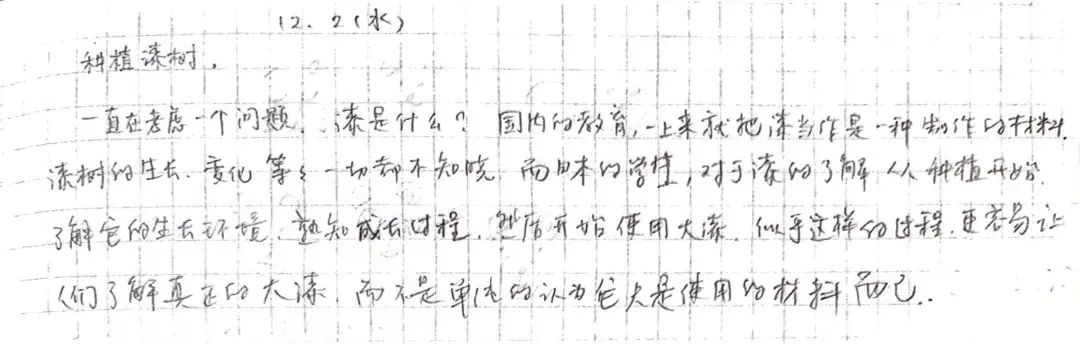 12.2(水)
种植漆树。
一直在考虑一个问题,漆是什么?国内的教育,一上来就把漆当作是一种制作的材料,
漆树的生长、变化等々一切都不知晓。而日本的学生,对于漆的了解从种植开始,
了解它的生长环境,熟知成长过程,然后开始使用大漆。似乎这样的过程,更容易让
人们了解真正的大漆,而不是单纯的认为它只是使用的材料而已..